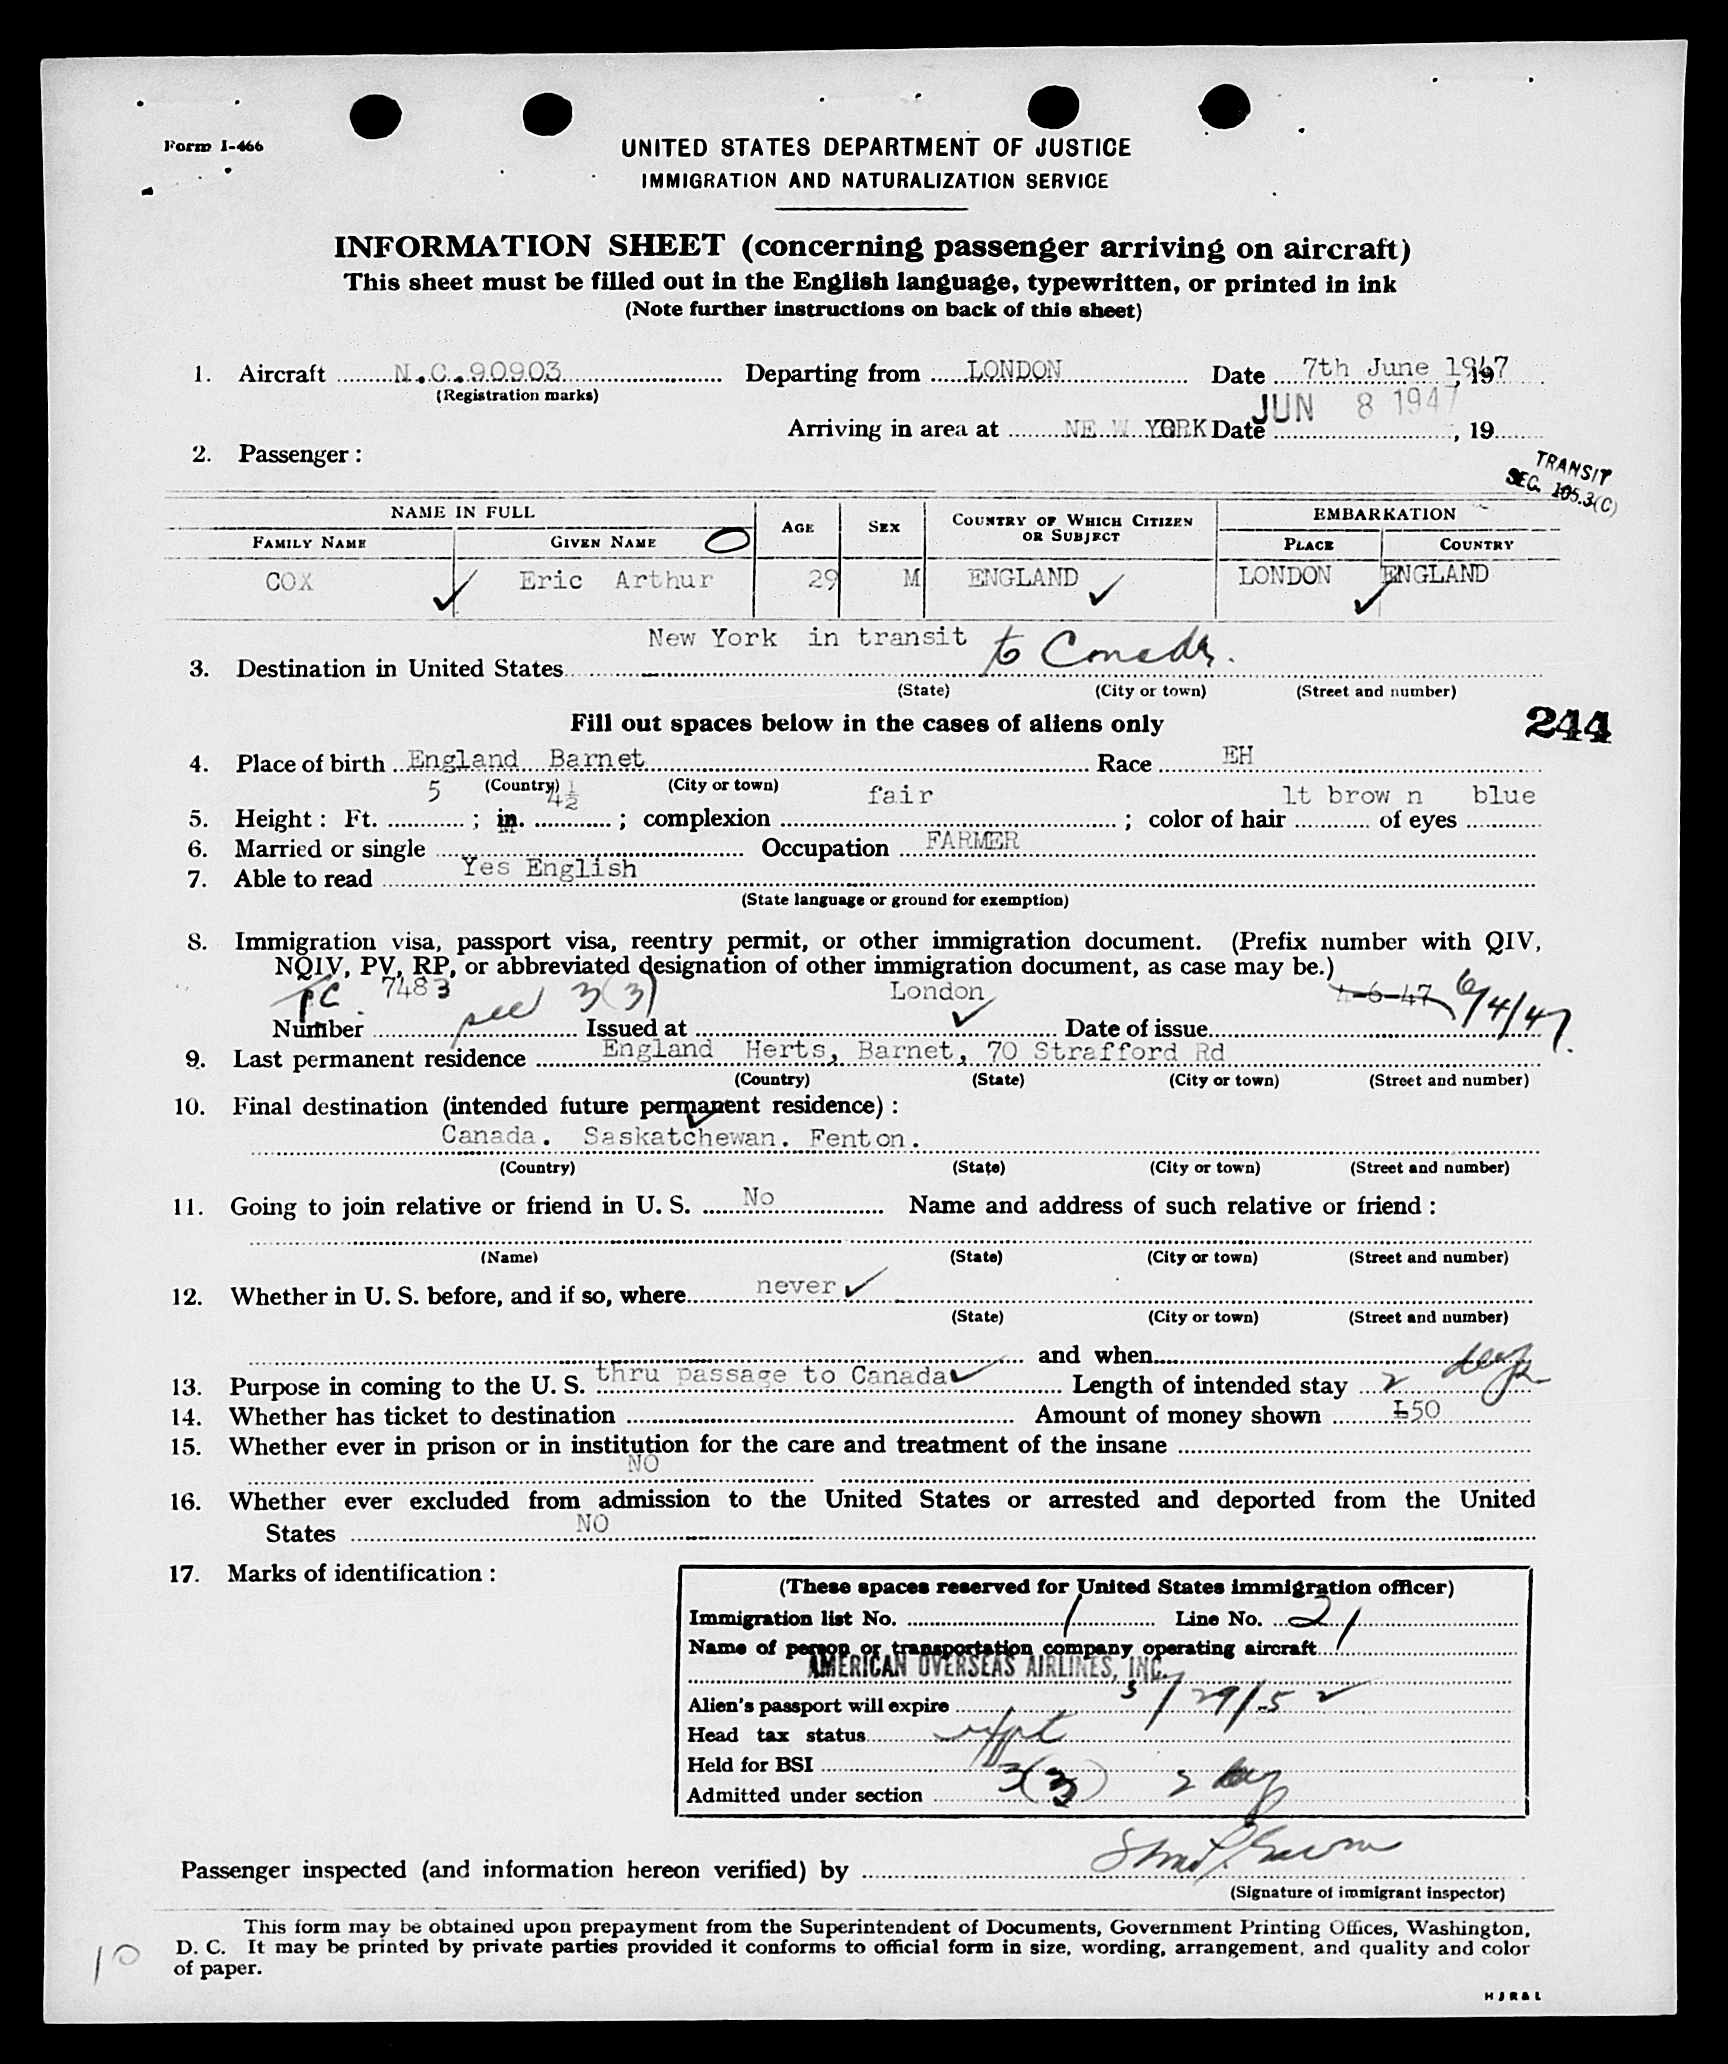 Form I-466
UNITED STATES DEPARTMENT OF JUSTICE
IMMIGRATION AND NATURALIZATION SERVICE
INFORMATION SHEET (concerning passenger arriving on aircraft)
This sheet must be filled out in the English language, typewritten, or printed in ink
(Note further instructions on back of this sheet)
1. Aircraft N.C.90903 Departing from LONDON Date 7th June 1947, 19
(Registration marks)
JUN 8 1947
Arriving in area at NEW YORK Date , 19
2. Passenger :
TRANSIT
SEC. 105.3(C)
NAME IN FULL EMBARKATION
FAMILY NAME GIVEN NAME AGE SEX COUNTRY OF WHICH CITIZEN OR SUBJECT PLACE COUNTRY
COX Eric Arthur 29 M ENGLAND LONDON ENGLAND
New York in transit to Canada.
3. Destination in United States
(State) (City or town) (Street and number)
Fill out spaces below in the cases of aliens only
244
4. Place of birth England Barnet Race EH
(Country) (City or town)
5 4½ fair lt brow n blue
5. Height : Ft. ; in. ; complexion ; color of hair of eyes
6. Married or single M Occupation FARMER
7. Able to read Yes English
(State language or ground for exemption)
8. Immigration visa, passport visa, reentry permit, or other immigration document. (Prefix number with QIV,
NQIV, PV, RP, or abbreviated designation of other immigration document, as case may be.)
7483 3(3) London 4-6-47 6/4/47.
Number Issued at Date of issue
9. Last permanent residence England Herts, Barnet, 70 Strafford Rd
(Country) (State) (City or town) (Street and number)
10. Final destination (intended future permanent residence) :
Canada. Saskatchewan. Fenton.
(Country) (State) (City or town) (Street and number)
11. Going to join relative or friend in U. S. No Name and address of such relative or friend :
(Name) (State) (City or town) (Street and number)
12. Whether in U. S. before, and if so, where never
(State) (City or town) (Street and number)
and when
13. Purpose in coming to the U. S. thru passage to Canada Length of intended stay 2 days
14. Whether has ticket to destination Amount of money shown £50
15. Whether ever in prison or in institution for the care and treatment of the insane
NO
16. Whether ever excluded from admission to the United States or arrested and deported from the United
States NO
17. Marks of identification :
(These spaces reserved for United States immigration officer)
Immigration list No. 1 Line No. 21
Name of person or transportation company operating aircraft
AMERICAN OVERSEAS AIRLINES, INC.
Alien's passport will expire 5/29/52
Head tax status
Held for BSI
Admitted under section 3(3) 2 days
Passenger inspected (and information hereon verified) by
(Signature of immigrant inspector)
This form may be obtained upon prepayment from the Superintendent of Documents, Government Printing Offices, Washington,
D. C. It may be printed by private parties provided it conforms to official form in size, wording, arrangement, and quality and color
of paper.
10
H J R & L